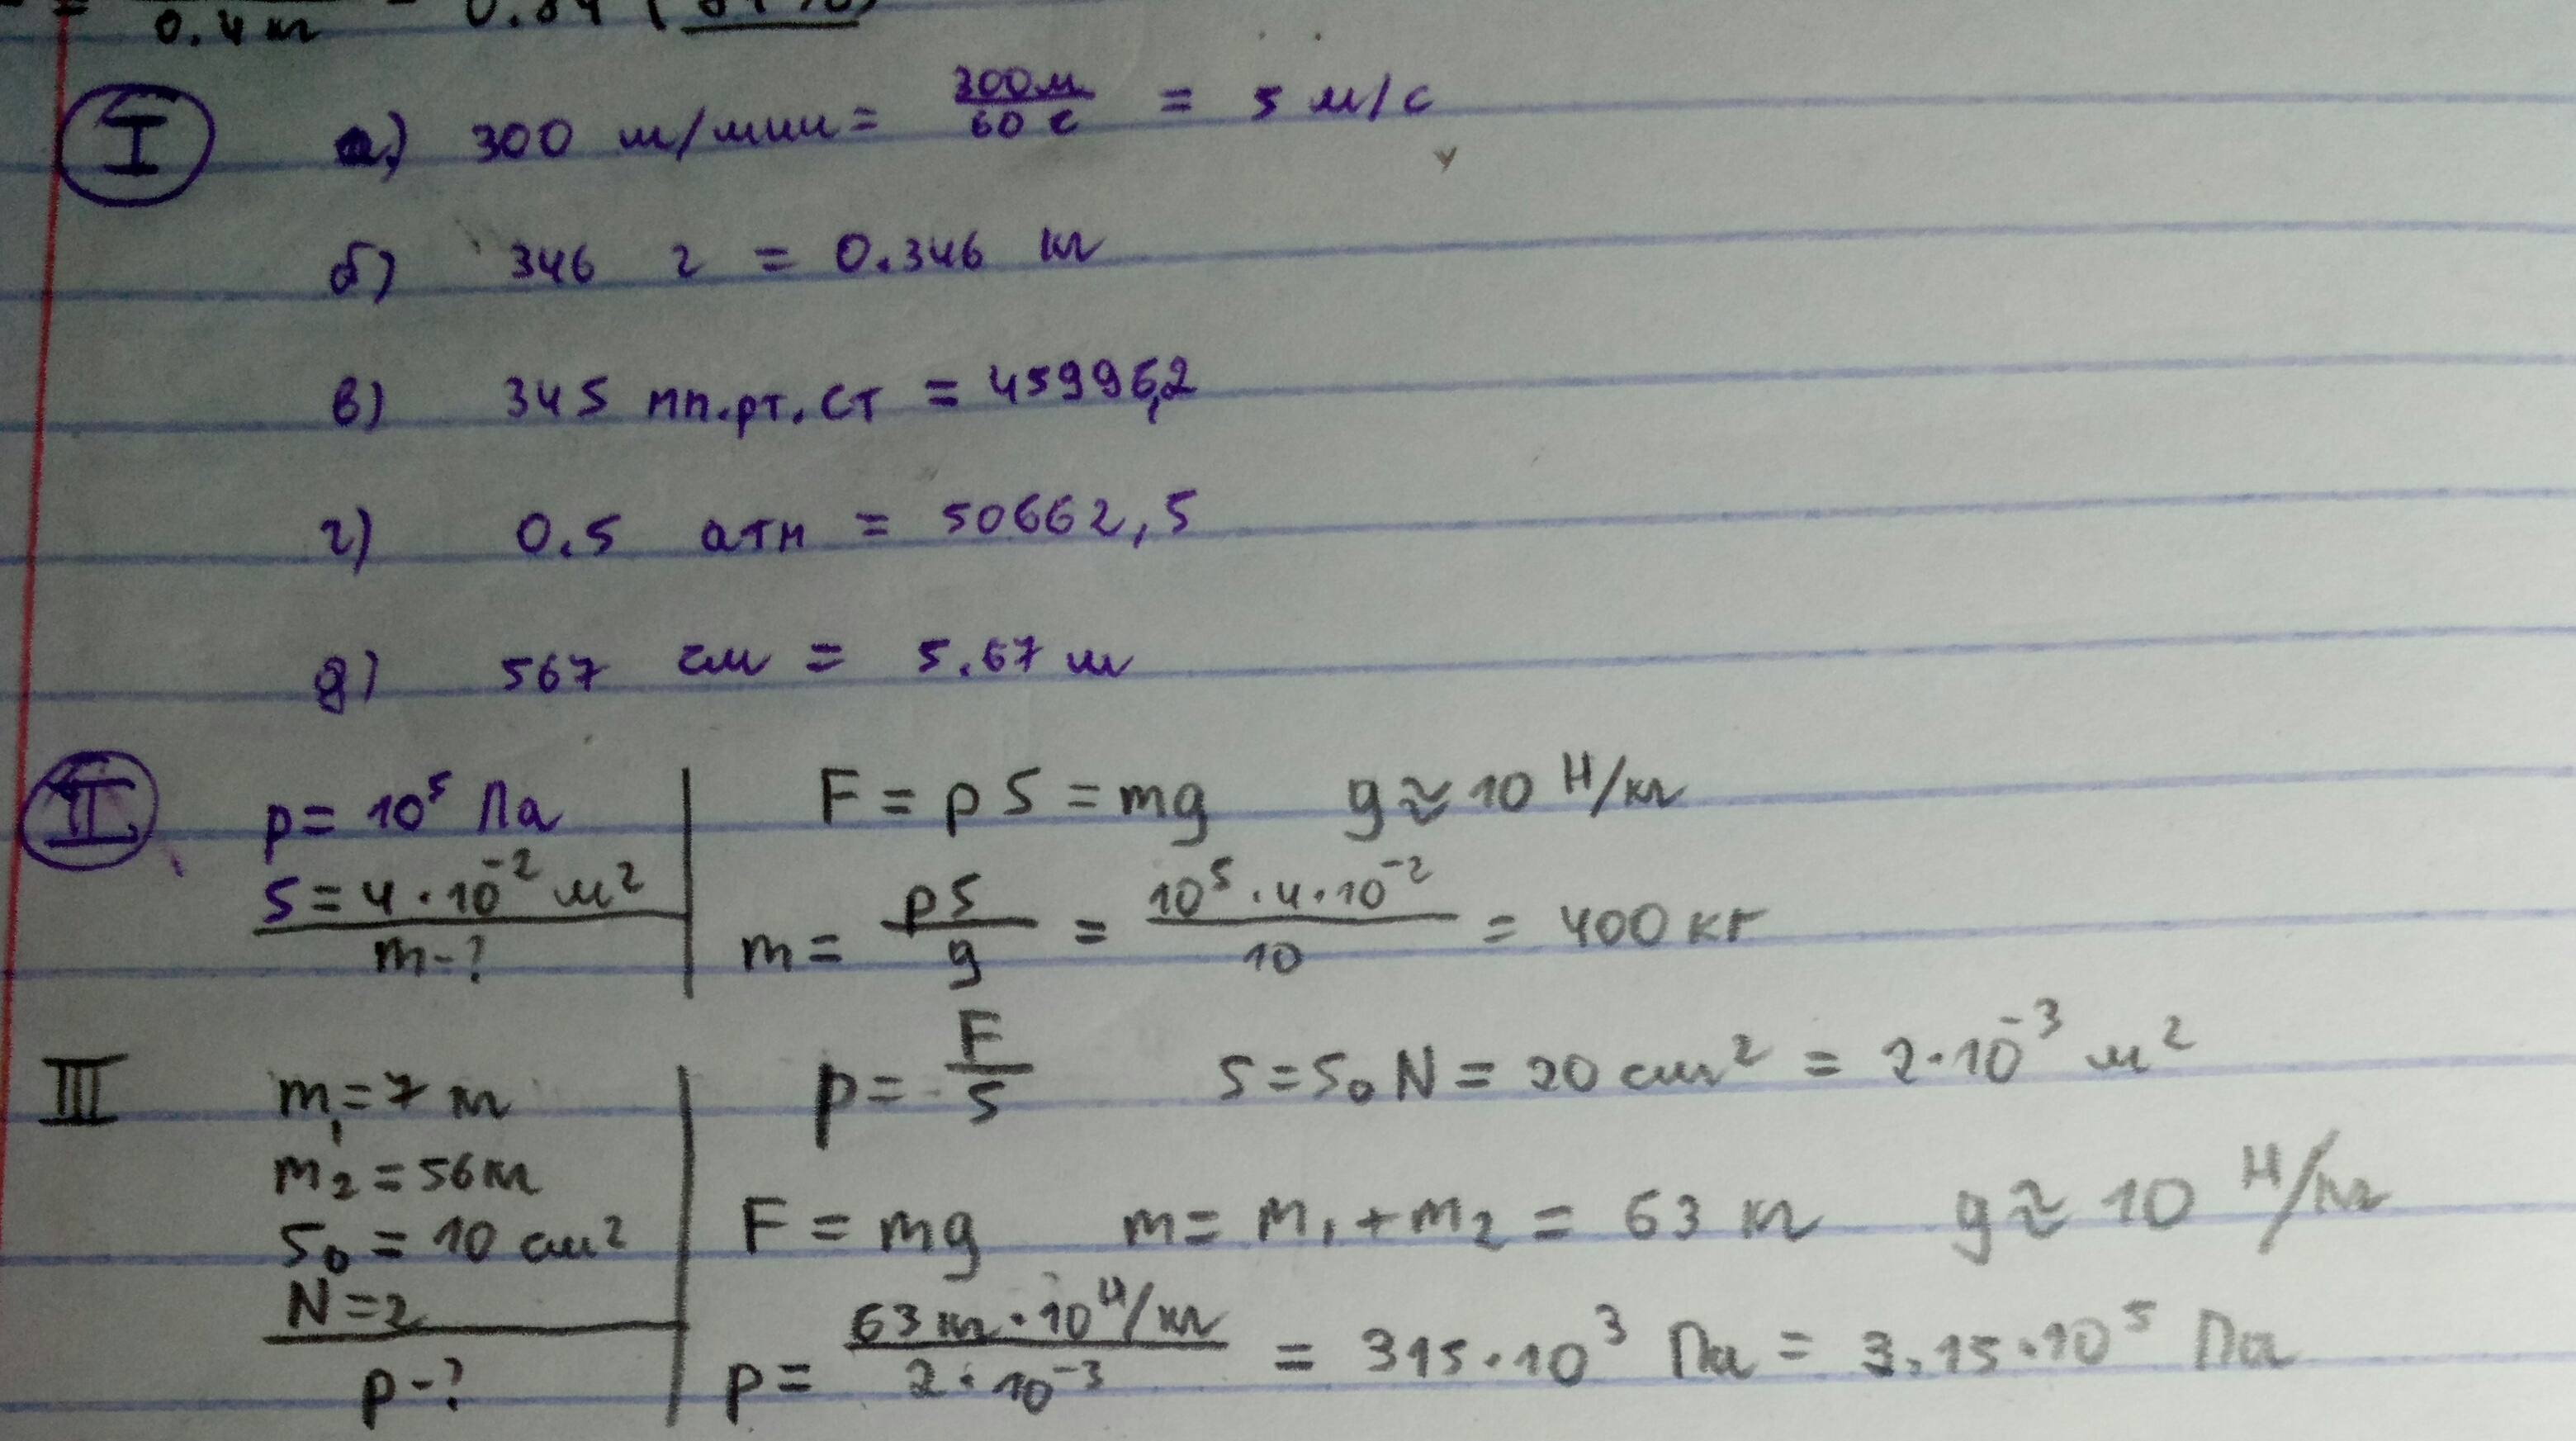 0.4 кг
I
а) 300 м/мин = 300м/60 с = 5 м/с
б) 346 г = 0.346 кг
в) 345 мм.рт.ст = 45996,2
г) 0.5 атм = 50662,5
д) 567 см = 5.67 м
II
p = 10⁵ Па
S = 4 · 10⁻² м²
m - ?
F = pS = mg g ≈ 10 Н/кг
m = pS/g = 10⁵ · 4 · 10⁻²/10 = 400 кг
III
m₁ = 7 кг
m₂ = 56 кг
S₀ = 10 см²
N = 2
p - ?
p = F/S S = S₀N = 20 см² = 2 · 10⁻³ м²
F = mg m = m₁ + m₂ = 63 кг g ≈ 10 Н/кг
p = 63 кг · 10 Н/кг/2 · 10⁻³ = 315 · 10³ Па = 3.15 · 10⁵ Па